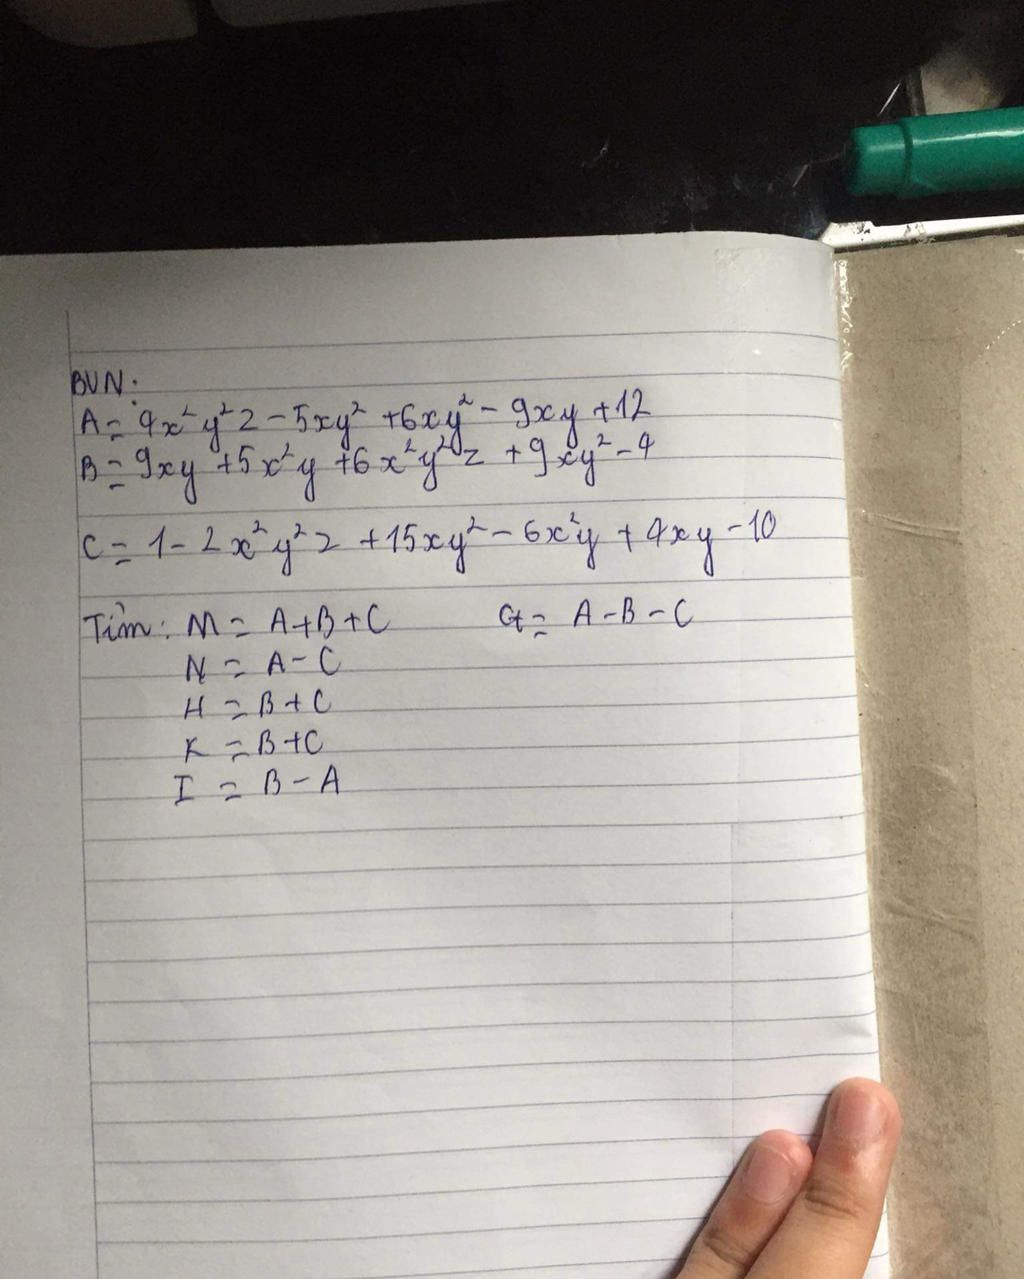 BVN:
A = 4x²y²z - 5xy² + 6xy² - 9xy + 12
B = 9xy + 5x²y + 6x²y²z + 9xy² - 4
C = 1 - 2x²y²z + 15xy² - 6x²y + 4xy - 10
Tìm: M = A + B + C G = A - B - C
N = A - C
H = B + C
K = B + C
I = B - A